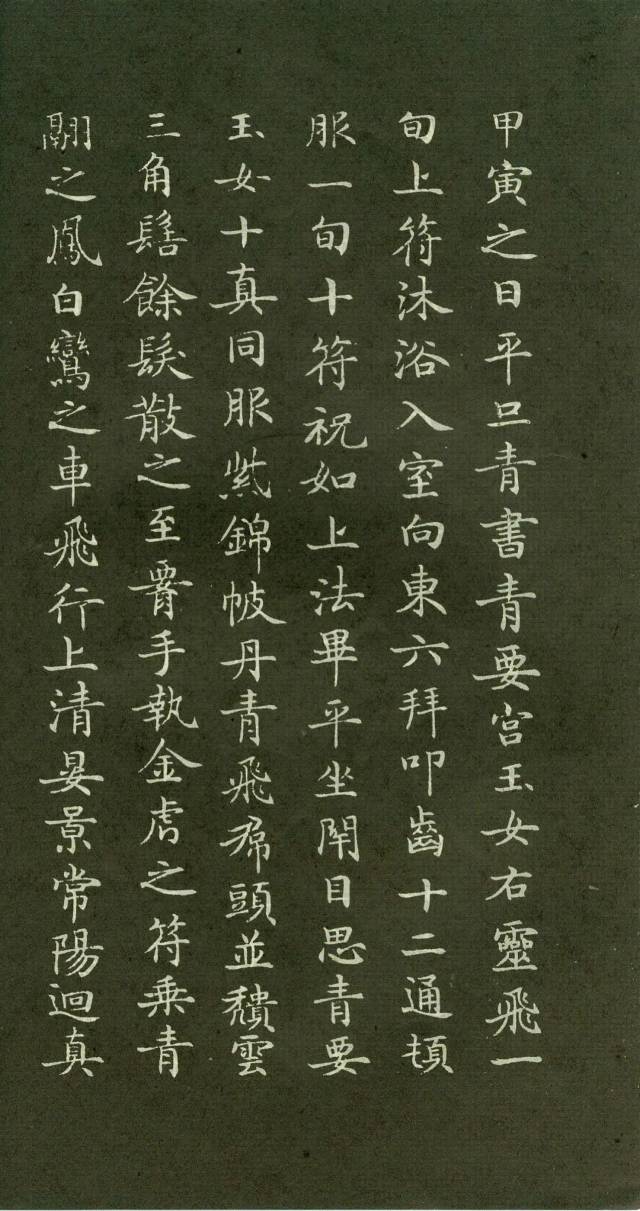 甲寅之日平旦青書青要宮玉女右靈飛一
旬上符沐浴入室向東六拜叩齒十二通頓
服一旬十符祝如上法畢平坐閇目思青要
玉女十真同服紫錦帔丹青飛帬頭並頽雲
三角髻餘髮散之至𦝫手執金虎之符乗青
翮之鳳白鸞之車飛行上清晏景常陽迴真